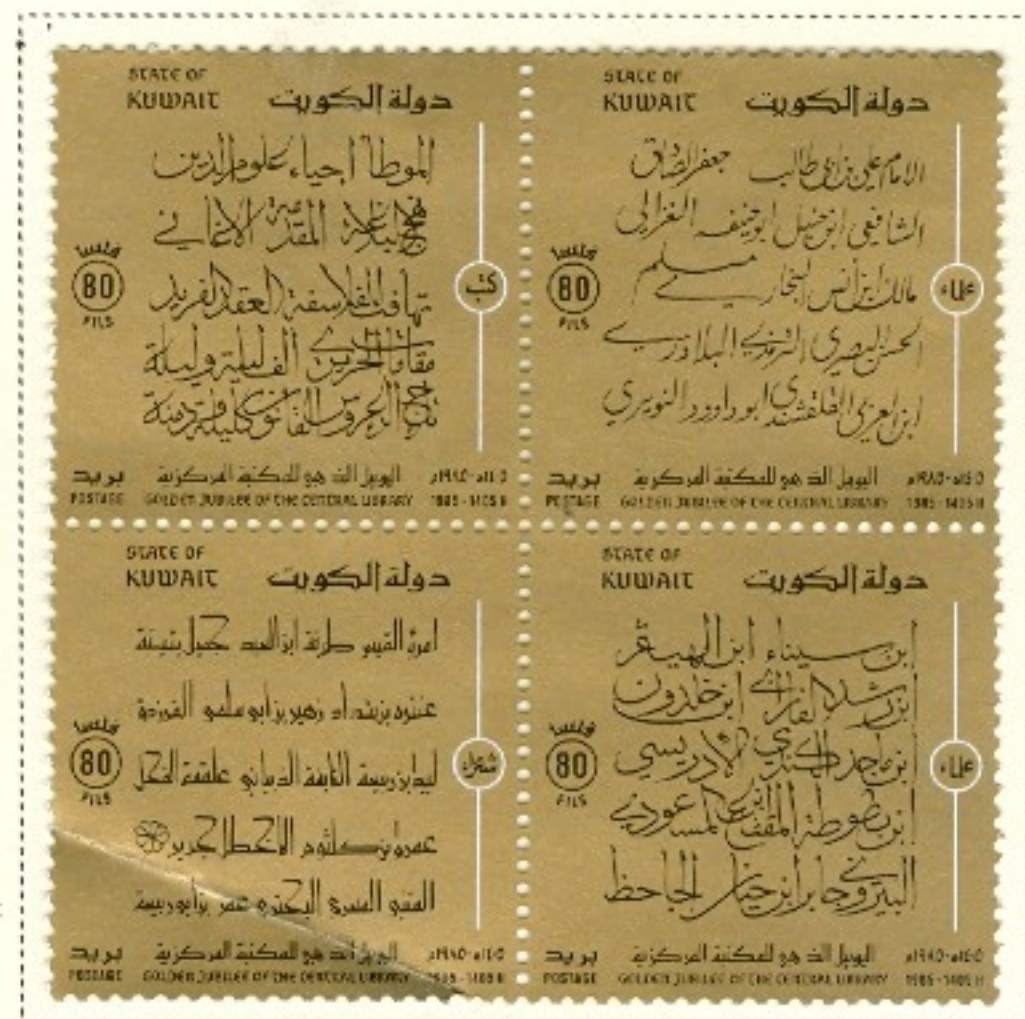 STATE OF
KUWAIT دولة الكويت
الموطأ احياء علوم الدين
نهج البلاغة المقدمة الاغاني
تهافت الفلاسفة العقد الفريد
مقامات الحريري الف ليلة وليلة
تاج العروس القانون كليلة ودمنة
فلسا
80
FILS
كتب
بريد اليوبيل الذهبي للمكتبة المركزية ١٤٠٥هـ-١٩٨٥م
POSTAGE GOLDEN JUBILEE OF THE CENTRAL LIBRARY 1985-1405 H
STATE OF
KUWAIT دولة الكويت
الامام علي بن ابي طالب جعفر الصادق
الشافعي ابن حنبل ابو حنيفه الغزالي
مالك ابن أنس البخاري مسلم
الحسن البصري الترمذي البلاذري
ابن العربي القلقشندي ابو داوود النويري
فلسا
80
FILS
علماء
بريد اليوبيل الذهبي للمكتبة المركزية ١٤٠٥هـ-١٩٨٥م
POSTAGE GOLDEN JUBILEE OF THE CENTRAL LIBRARY 1985-1405 H
STATE OF
KUWAIT دولة الكويت
امرؤ القيس طرفة ابن العبد جميل بثينة
عنترة بن شداد زهير بن ابو سلمى الفرزدق
لبيد ابن ربيعة النابغة الذبياني علقمة الفحل
عمرو بن كلثوم الاخطل جرير
المتنبي المعري البحتري عمر بن ابو ربيعة
فلسا
80
FILS
شعراء
بريد اليوبيل الذهبي للمكتبة المركزية ١٤٠٥هـ-١٩٨٥م
POSTAGE GOLDEN JUBILEE OF THE CENTRAL LIBRARY 1985-1405 H
STATE OF
KUWAIT دولة الكويت
ابن سيناء ابن الهيثم
ابن رشد الفارابي ابن خلدون
ابن ماجد الكندي الادريسي
ابن بطوطة ابن المقفع المسعودي
البيروني جابر ابن حيان الجاحظ
فلسا
80
FILS
علماء
بريد اليوبيل الذهبي للمكتبة المركزية ١٤٠٥هـ-١٩٨٥م
POSTAGE GOLDEN JUBILEE OF THE CENTRAL LIBRARY 1985-1405 H